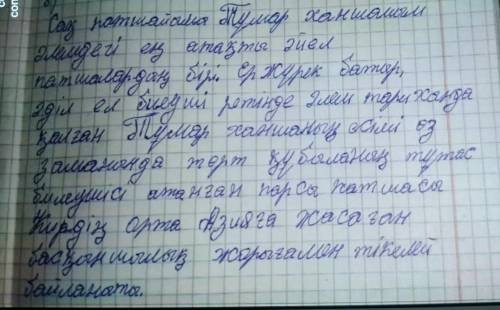 Сақ патшайымы Тұмар ханшайым
әлемдегі ең атақты әйел
патшалардың бірі. Ер жүрек батыр,
әділ ел билеуші ретінде әлем тарихында
қалған Тұмар ханшаның есімі өз
заманында төрт құбыланың тұтас
билеушісі атанған парсы патшасы
Кирдің Орта Азияға жасаған
басқыншылық жорығымен тікелей
байланысты.